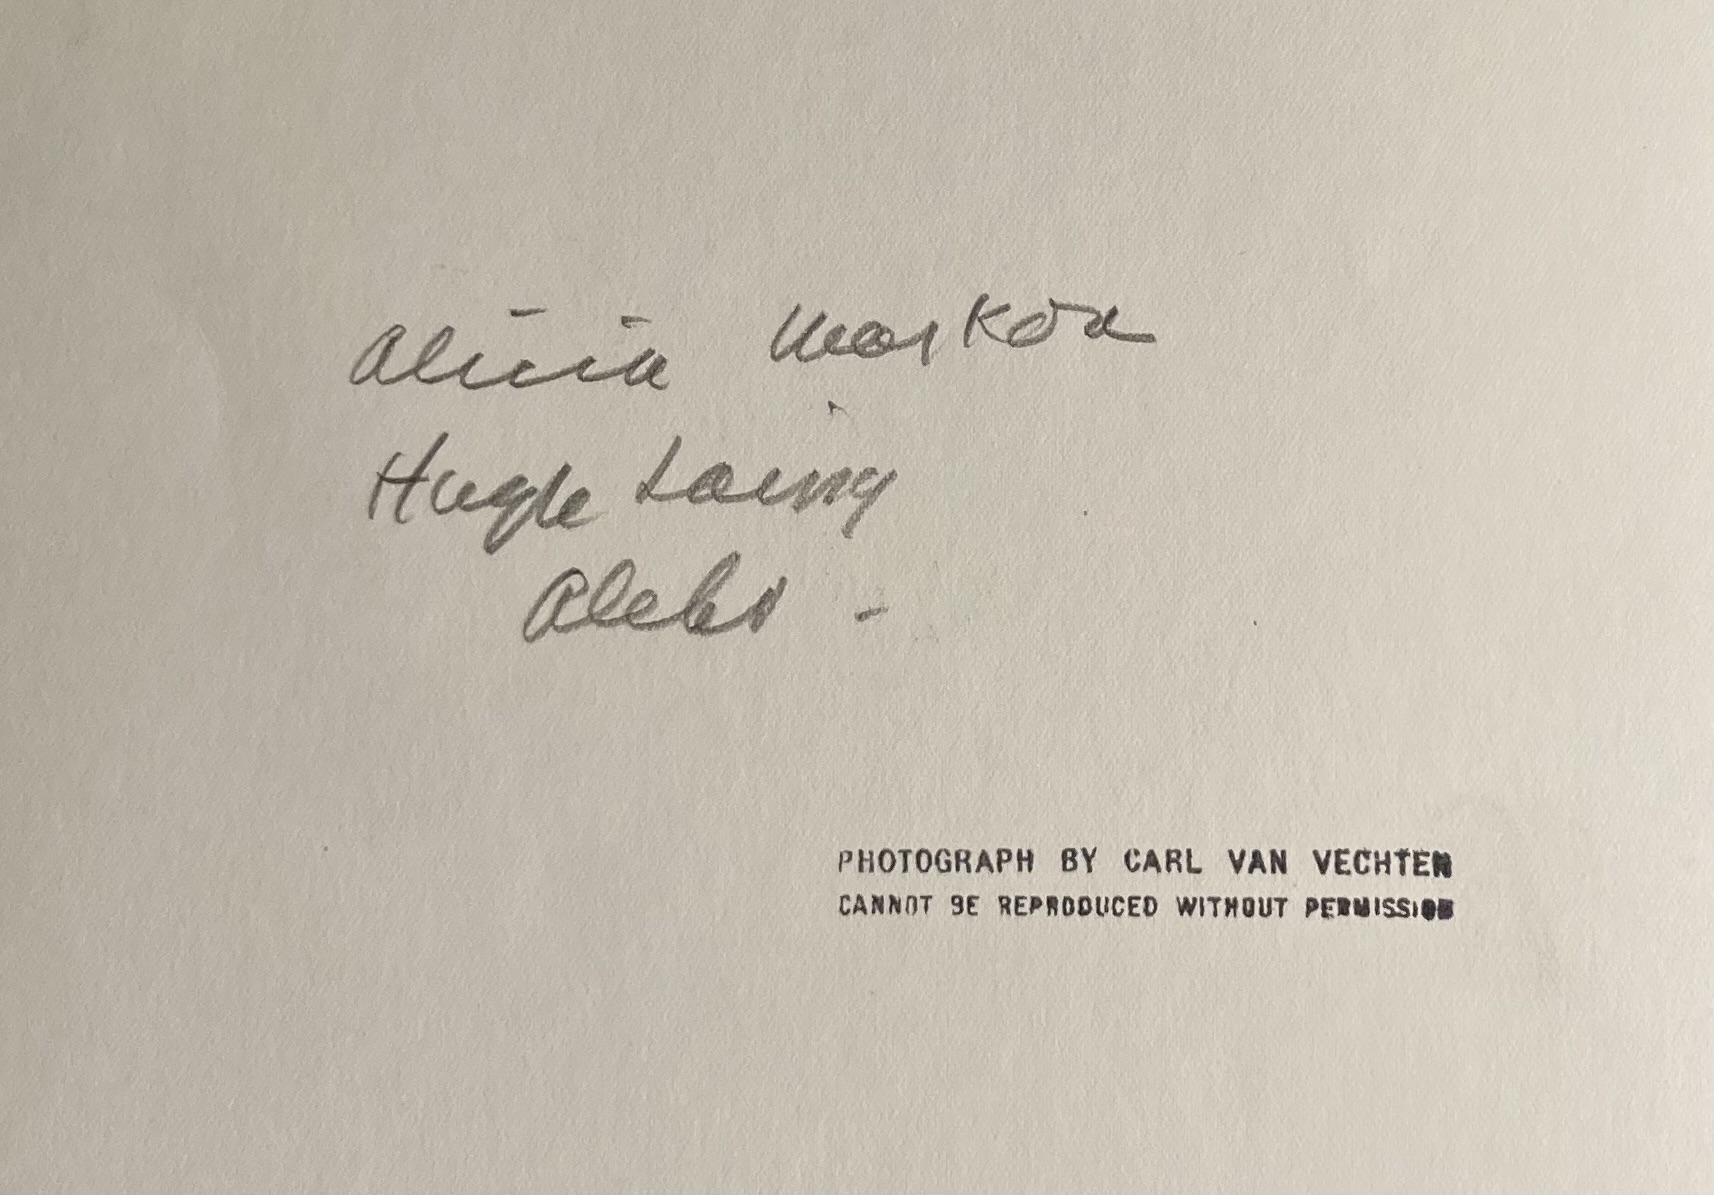 Alicia Markova
Hugh Laing
Aleko -
PHOTOGRAPH BY CARL VAN VECHTEN
CANNOT BE REPRODUCED WITHOUT PERMISSION